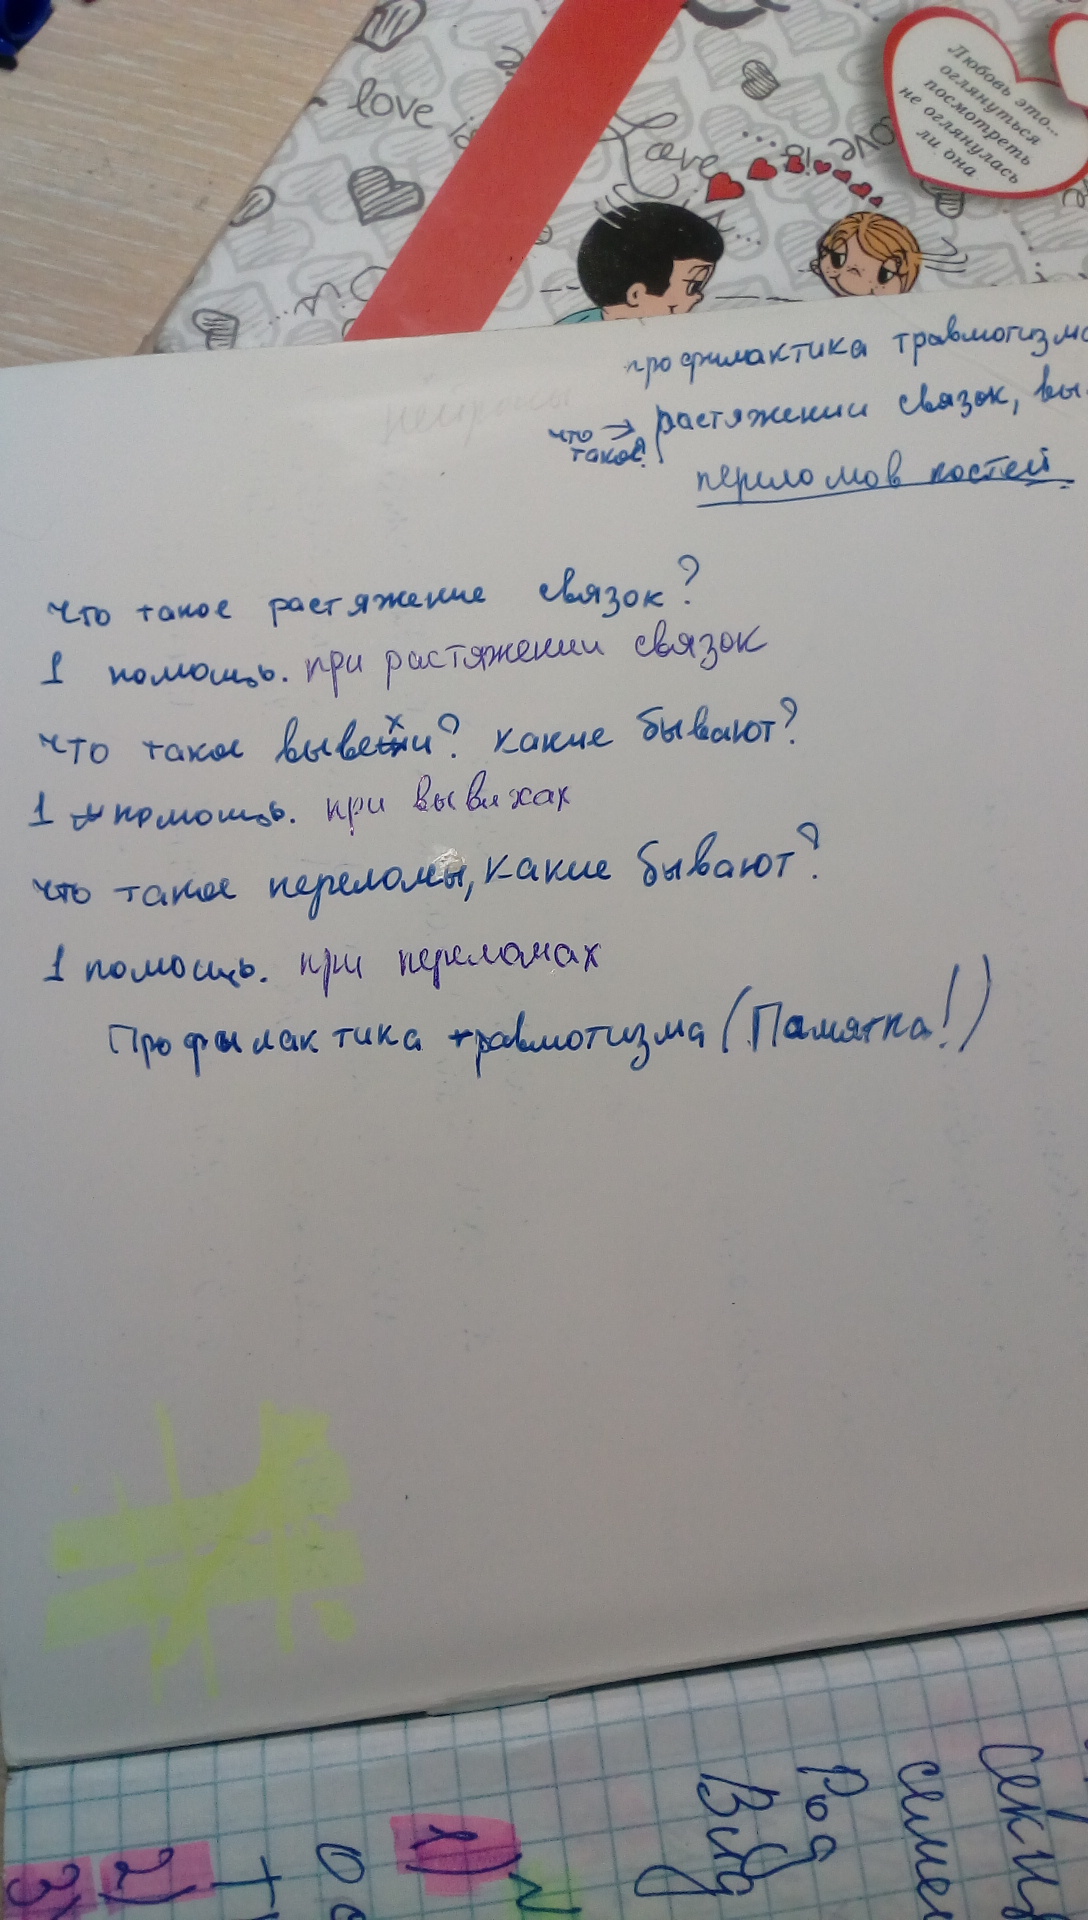 love is
Love is...
Love is...
Любовь это...
оглянуться
посмотреть
не оглянулась
ли она
профилактика
что → растяжении связок,
такое?
переломов костей.
Что такое растяжение связок?
1 помощь. при растяжении связок
Что такое вывехи? какие бывают?
1 помощь. при вывихах
Что такое переломы, какие бывают?
1 помощь. при переломах
Профилактика травмотизма (Памятка!)
Род
Вид
1)
2)
3)